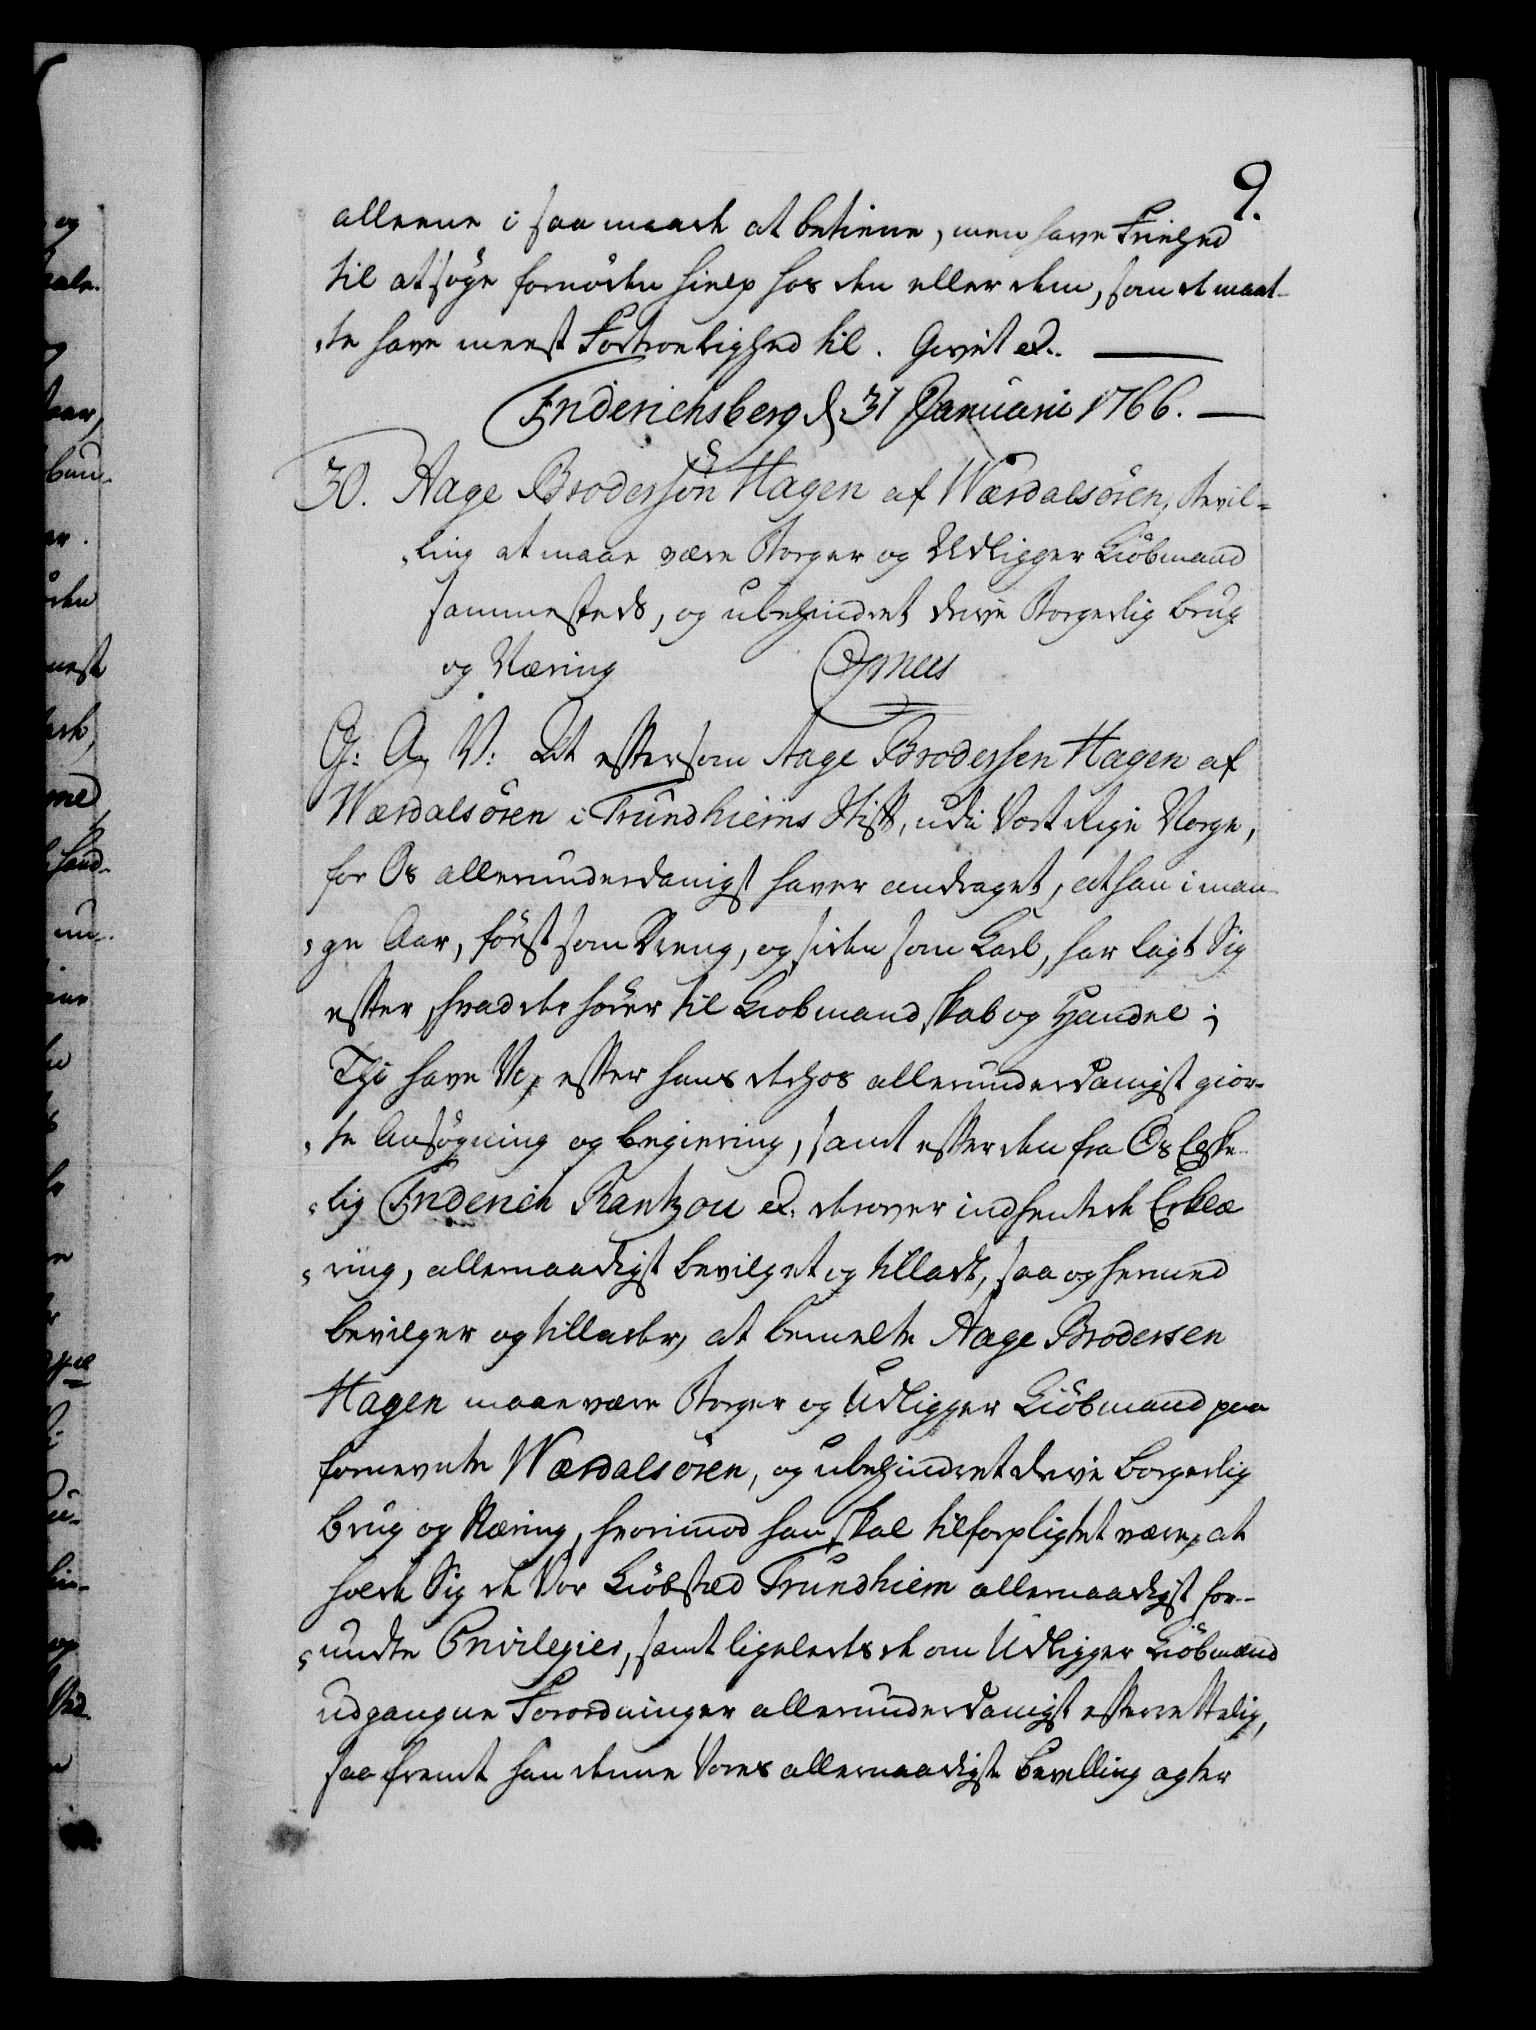 9.
alleene i saa maade at betiene, men have Friehed
til at søge fornøden hielp hos den eller dem, som de maat-
te have meest Fortroelighed til. Givet etc.
Friderichsberg d: 31 Januarii 1766.
30. Aage Brodersøn Hagen af Wærdalsøren, Bevil-
ling at maae være Borger og Udligger Kiøbmand
sammesteds, og ubehindret drive Borgerlig brug
og Næring Gynees
G: A: V: At eftersom Aage Brodersen Hagen af
Wærdalsøren i Trundhiems Stift, udi Vort Rige Norge,
for Os allerunderdanigst haver andraget, at han i man-
ge Aar, først som Dreng, og siden som Karl, har lagt Sig
efter, hvad der hører til Kiobmandskab og Handel;
Thi have Vi, efter hans derhos allerunderdanigst gior-
te Ansøgning og begiering, samt efter den fra Os Elske-
lig Friderich Rantzou etc. derover indhentede Erklæ
ring, allernaadigst bevilget og tilladt, saa og hermed
bevilger og tillader, at bemelte Aage Brodersen
Hagen maae være Borger og Udligger Kiøbmand paa
fornevnte Wærdalsøren, og ubehindret drive borgerlig
brug og Næring, hvorimod han skal tilforpligtet være, at
holde Sig de Vor Kiøbsted Trundhiem allernaadigst for-
undte Privilegier, samt ligeledes de om Udligger Kiøbmænd
udgangne Forordninger allerunderdanigst efterrettelig,
saafremt han denne Vores allernaadigste Bevilling agter